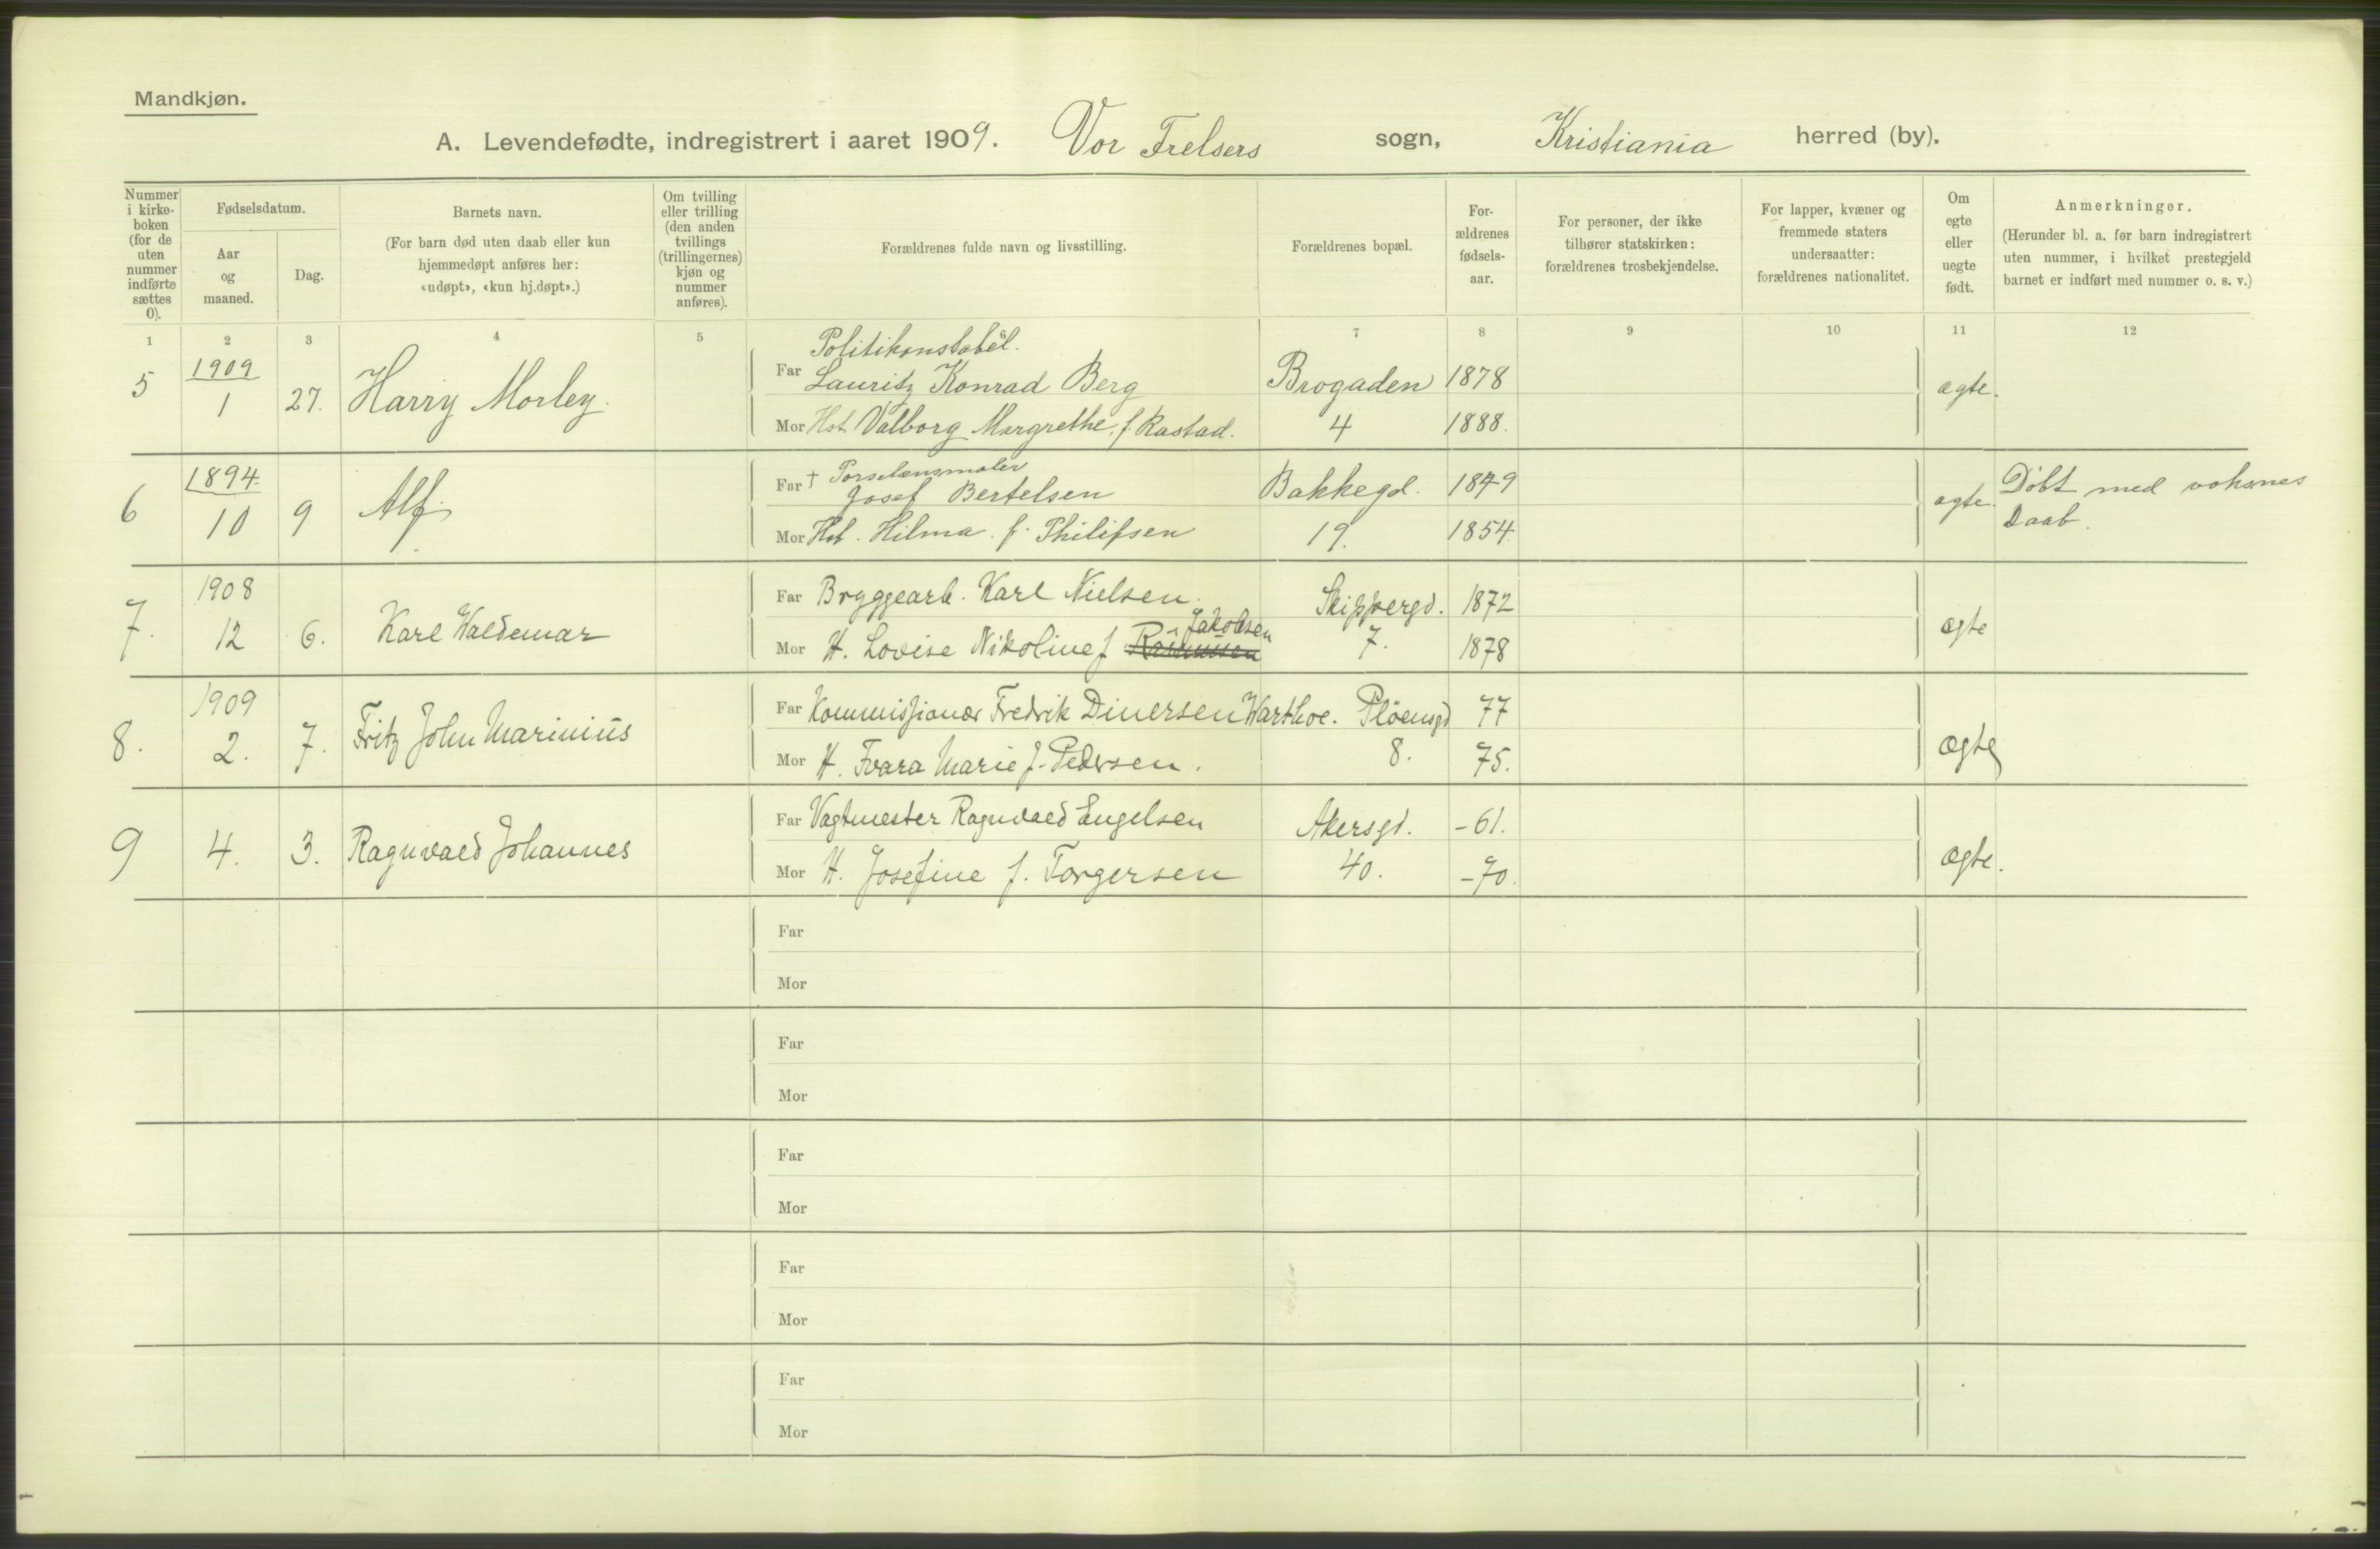 Mandkjøn.
A. Levendefødte, indregistrert i aaret 1909. Vor Frelsers sogn, Kristiania herred (by).
Nummer i kirke-boken (for de uten nummer indførte sættes 0).
Fødselsdatum.
Aar og maaned.
Dag.
Barnets navn.
(For barn død uten daab eller kun hjemmedøpt anføres her: «udøpt», «kun hj.døpt».)
Om tvilling eller trilling (den anden tvillings (trillingernes) kjøn og nummer anføres).
Forældrenes fulde navn og livsstilling.
Forældrenes bopæl.
For-ældrenes fødsels-aar.
For personer, der ikke tilhører statskirken: forældrenes trosbekjendelse.
For lapper, kvæner og fremmede staters undersaatter: forældrenes nationalitet.
Om egte eller uegte født.
Anmerkninger.
(Herunder bl. a. for barn indregistrert uten nummer, i hvilket prestegjeld barnet er indført med nummer o. s. v.)
1 2 3 4 5 6 7 8 9 10 11 12
Politikonstabel.
5 1909 1 27. Harry Morley. Far Lauritz Konrad Berg Brogaden 1878 ægte.
Mor Hst. Valborg Margrethe, f. Rastad. 4 1888.
6 1894. 10 9 Alf. Far † Porselænsmaler Josef Bertelsen Bakkegd. 1849 ægte. Döbt med voksnes Daab.
Mor Hst. Hilma f. Philipsen 19. 1854.
7. 1908 12 6. Karl Waldemar Far Bryggearb. Karl Nielsen. Skippergd. 1872 ægte
Mor H. Lovise Nikoline f Rasmussen Jakobsen 7. 1878
8. 1909 2. 7. Fritz John Marinius Far Kommissionær Fredrik Dinersen Warthoe. Plöensgd 77 ægte
Mor H. Tvara Marie f. Pedersen. 8. 75.
9 4. 3. Ragnvald Johannes Far Vagtmester Ragnvald Engelsen Akersgd. -61. ægte.
Mor H. Josefine f. Torgersen 40. -70.
Far
Mor
Far
Mor
Far
Mor
Far
Mor
Far
Mor